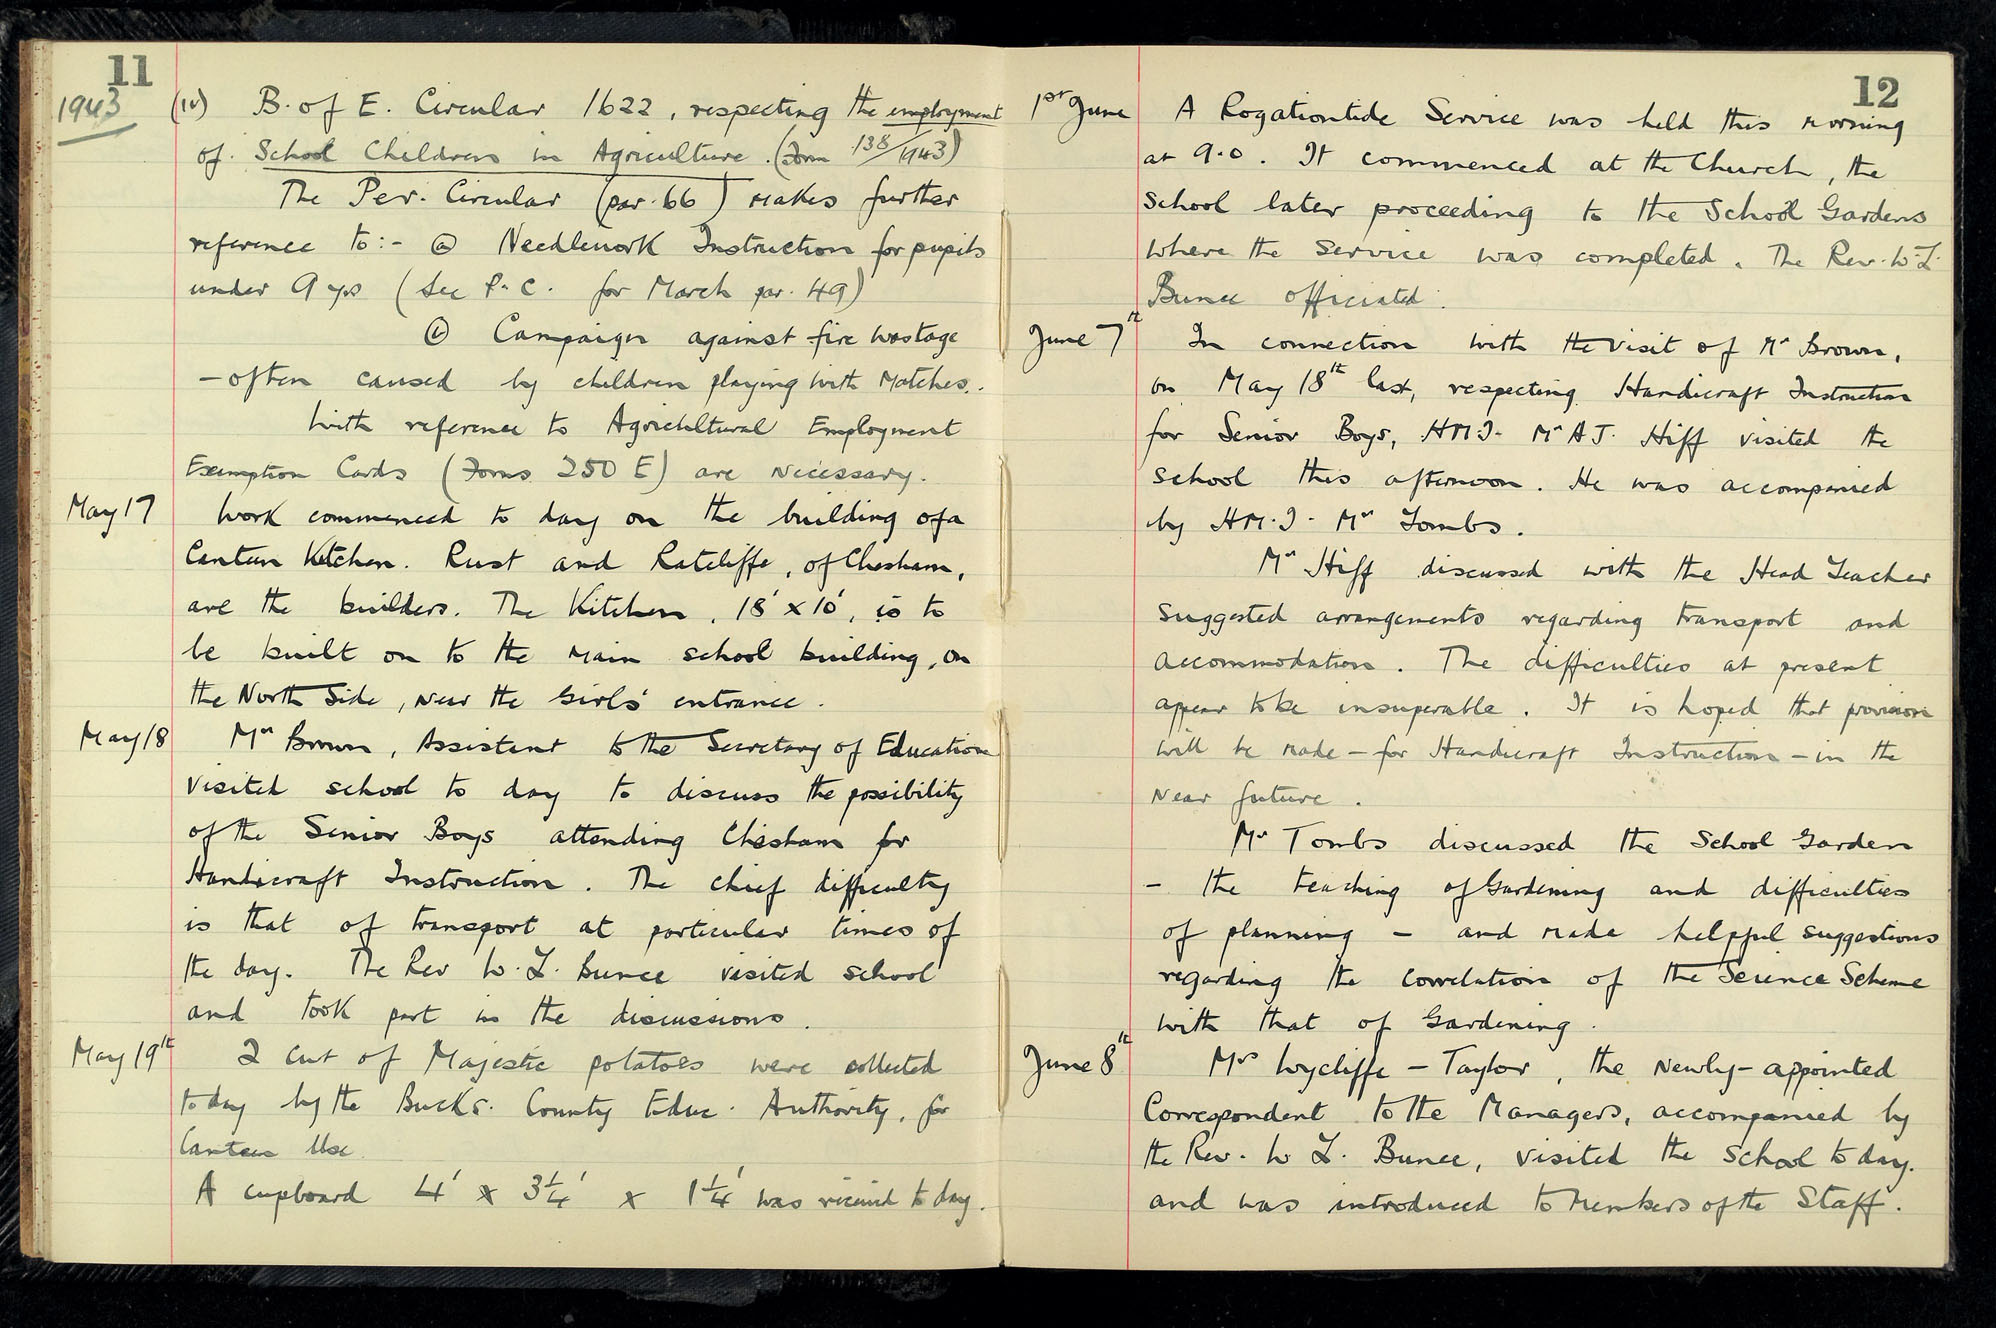 11
1943
(iv) B. of E. Circular 1622, respecting the employment
of School Children in Agriculture. (Form 138/1943)
The Per. Circular (par. 66) makes further
reference to:- (a) Needlework Instruction for pupils
under 9 yrs (See P.C. for March par. 49)
Campaign against fire wastage
- often caused by children playing with matches.
With reference to Agricultural Employment
Exemption Cards (Forms 250 E) are necessary.
May 17 Work commenced to day on the building of a
Canteen Kitchen. Rust and Ratcliffe, of Chesham,
are the builders. The Kitchen, 18' x 10', is to
be built on to the main school building, on
the North Side, near the Girls' entrance.
May 18 Mr Brown, Assistant to the Secretary of Education
visited school to day to discuss the possibility
of the Senior Boys attending Chesham for
Handicraft Instruction. The chief difficulty
is that of transport at particular times of
the day. The Rev W. L. Bunce visited school
and took part in the discussions.
May 19th 2 cwt of Majestic potatoes were collected
today by the Bucks. County Educ. Authority, for
Canteen Use.
A cupboard 4' x 3¼' x 1¼' was received to day.
12
1st June A Rogationtide Service was held this morning
at 9.0. It commenced at the Church, the
School later proceeding to the School Gardens
where the service was completed. The Rev. W. L.
Bunce officiated.
June 7th In connection with the visit of Mr Brown,
on May 18th last, respecting Handicraft Instruction
for Senior Boys, H.M.I. Mr A J. Hiff visited the
school this afternoon. He was accompanied
by H.M.I. Mr Tombs.
Mr Hiff discussed with the Head Teacher
suggested arrangements regarding transport and
accommodation. The difficulties at present
appear to be insuperable. It is hoped that provision
will be made - for Handicraft Instruction - in the
near future.
Mr Tombs discussed the School Garden
- the teaching of Gardening and difficulties
of planning - and made helpful suggestions
regarding the correlation of the Science Scheme
with that of Gardening.
June 8th Mrs Wycliffe - Taylor, the newly-appointed
Correspondent to the Managers, accompanied by
the Rev. W L. Bunce, visited the School to day.
and was introduced to members of the Staff.